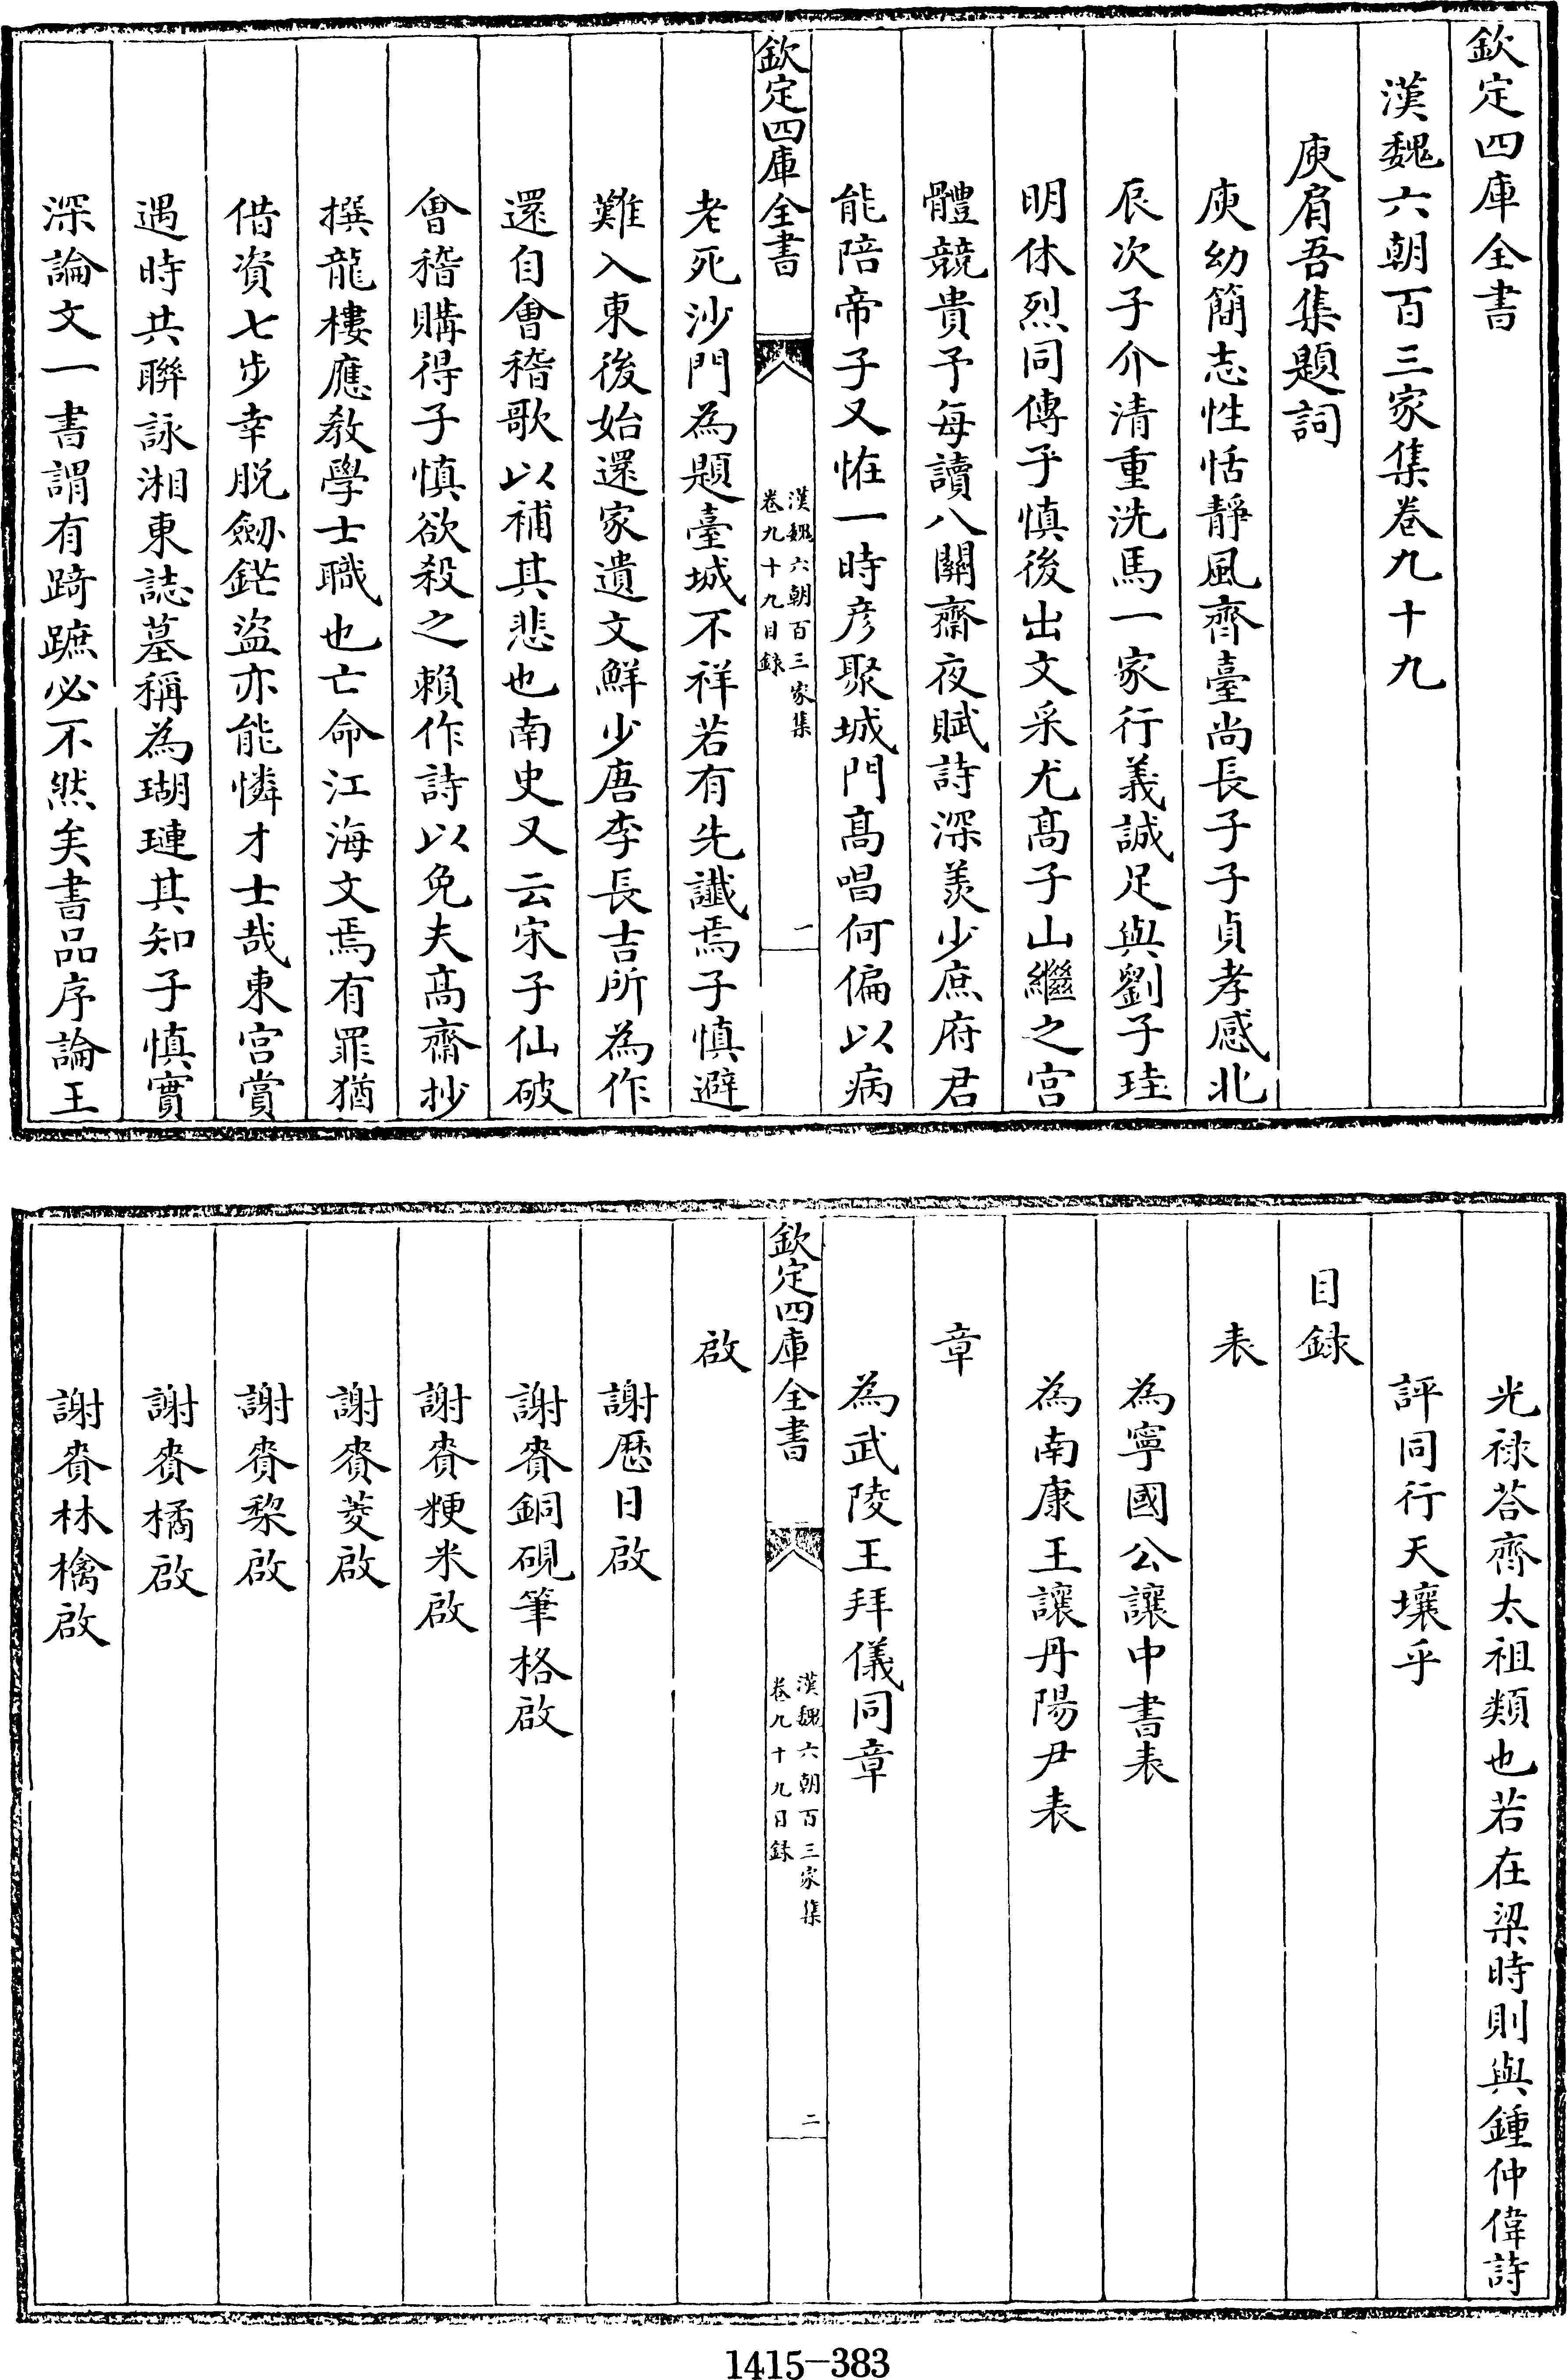 欽定四庫全書
漢魏六朝百三家集卷九十九
庾肩吾集題詞
庾幼簡志性恬靜風齊臺尚長子子貞孝感北
辰次子介清重洗馬一家行義誠足與劉子珪
明休烈同傳乎慎後出文采尤髙子山繼之宫
體競貴予每讀八關齋夜賦詩深羨少庶府君
能陪帝子又恠一時彦聚城門髙唱何偏以病
欽定四庫全書
漢魏六朝百三家集
卷九十九目録
一
老死沙門為題臺城不祥若有先讖焉子慎避
難入東後始還家遺文鮮少唐李長吉所為作
還自會稽歌以補其悲也南史又云宋子仙破
會稽購得子慎欲殺之賴作詩以免夫髙齋抄
撰龍樓應教學士職也亡命江海文焉有罪猶
借資七步幸脱劒鋩盜亦能憐才士哉東宫賞
遇時共聯詠湘東誌墓稱為瑚璉其知子慎實
深論文一書謂有踦蹠必不然矣書品序論王
光禄荅齊太祖類也若在梁時則與鍾仲偉詩
評同行天壤乎
目録
表
為寧國公讓中書表
為南康王讓丹陽尹表
章
為武陵王拜儀同章
欽定四庫全書
漢魏六朝百三家集
卷九十九目録
二
啟
謝厯日啟
謝賚銅硯筆格啟
謝賚粳米啟
謝賚菱啟
謝賚棃啟
謝賚橘啟
謝賚林檎啟
1415-383